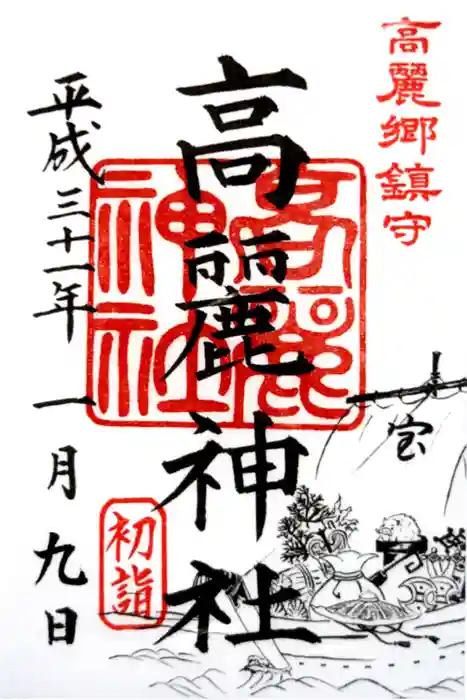 高麗郷鎮守
高麗神社
高麗神社
平成三十一年一月九日
初詣
宝